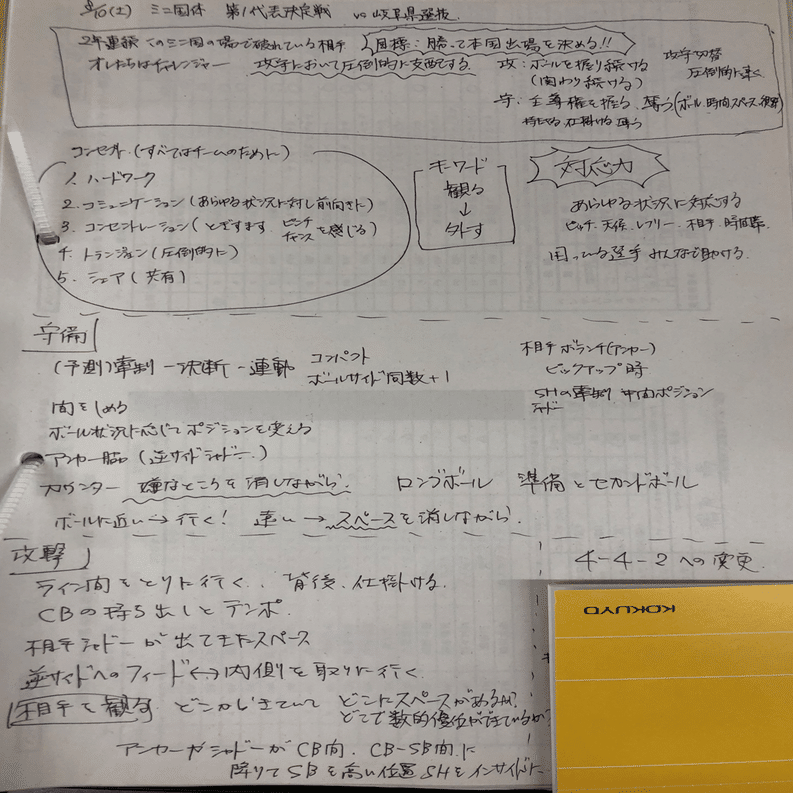 8/10(土) ミニ国体 第1代表決定戦 vs 岐阜県選抜
2年連続 このミニ国の場で破れている相手 目標:勝って本国出場を決める!!
オレたちはチャレンジャー 攻守において圧倒的に支配する
攻:ボールを握り続ける
(関わり続ける)
攻守切替
圧倒的に速く
守:主導権を握る 奪う(ボール、時間、スペース
仕掛ける 奪う
コンセプト(すべてはチームのために)
1. ハードワーク
2. コミュニケーション(あらゆる状況に対し前向きに)
3. コンセントレーション(とぎすます ピンチ チャンスを感じる)
4. トランジション(圧倒的に)
5. シェア(共有)
キーワード
観る
↓
外す
対応力
あらゆる状況に対応する
ピッチ、天候、レフリー、相手、時間帯
困っている選手 みんなで助ける
守備
(予測)牽制 ー 決断 ー 連動 コンパクト
ボールサイド同数+1
相手ボランチ(アンカー)
ピックアップ時
SHの牽制 中間ポジション
シャドー
間をしめる
ボール状況に応じてポジションを変える
アンカー脇(逆サイドシャドー)
カウンター 嫌なところを消しながら ロングボール 準備とセカンドボール
ボールに近い→行く! 遠い→スペースを消しながら
攻撃
4-4-2への変更
ライン間をとりに行く、背後、仕掛ける
CBの持ち出しとテンポ
相手シャドーが出てきたスペース
逆サイドへのフィード↔内側を取りに行く
相手を観る どこがあいていて どこにスペースがあるか?
どこで数的優位ができているか?
アンカーやシャドーがCB間、CB-SB間に
降りてSBを高い位置 SHをインサイドに
KOKUYO